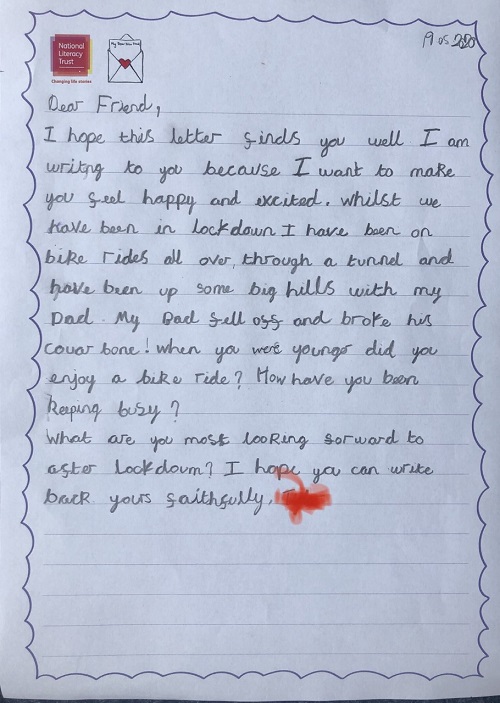 National
Literacy
Trust
Changing life stories
19 05 2020
Dear Friend,
I hope this letter finds you well I am
writng to you because I want to make
you feel happy and excited. whilst we
have been in lockdown I have been on
bike rides all over, through a tunnel and
have been up some big hills with my
Dad. My Dad fell off and broke his
couar bone! when you were younger did you
enjoy a bike ride? How have you been
keeping busy?
What are you most looking forward to
after lockdown? I hope you can write
back yours faithfully,